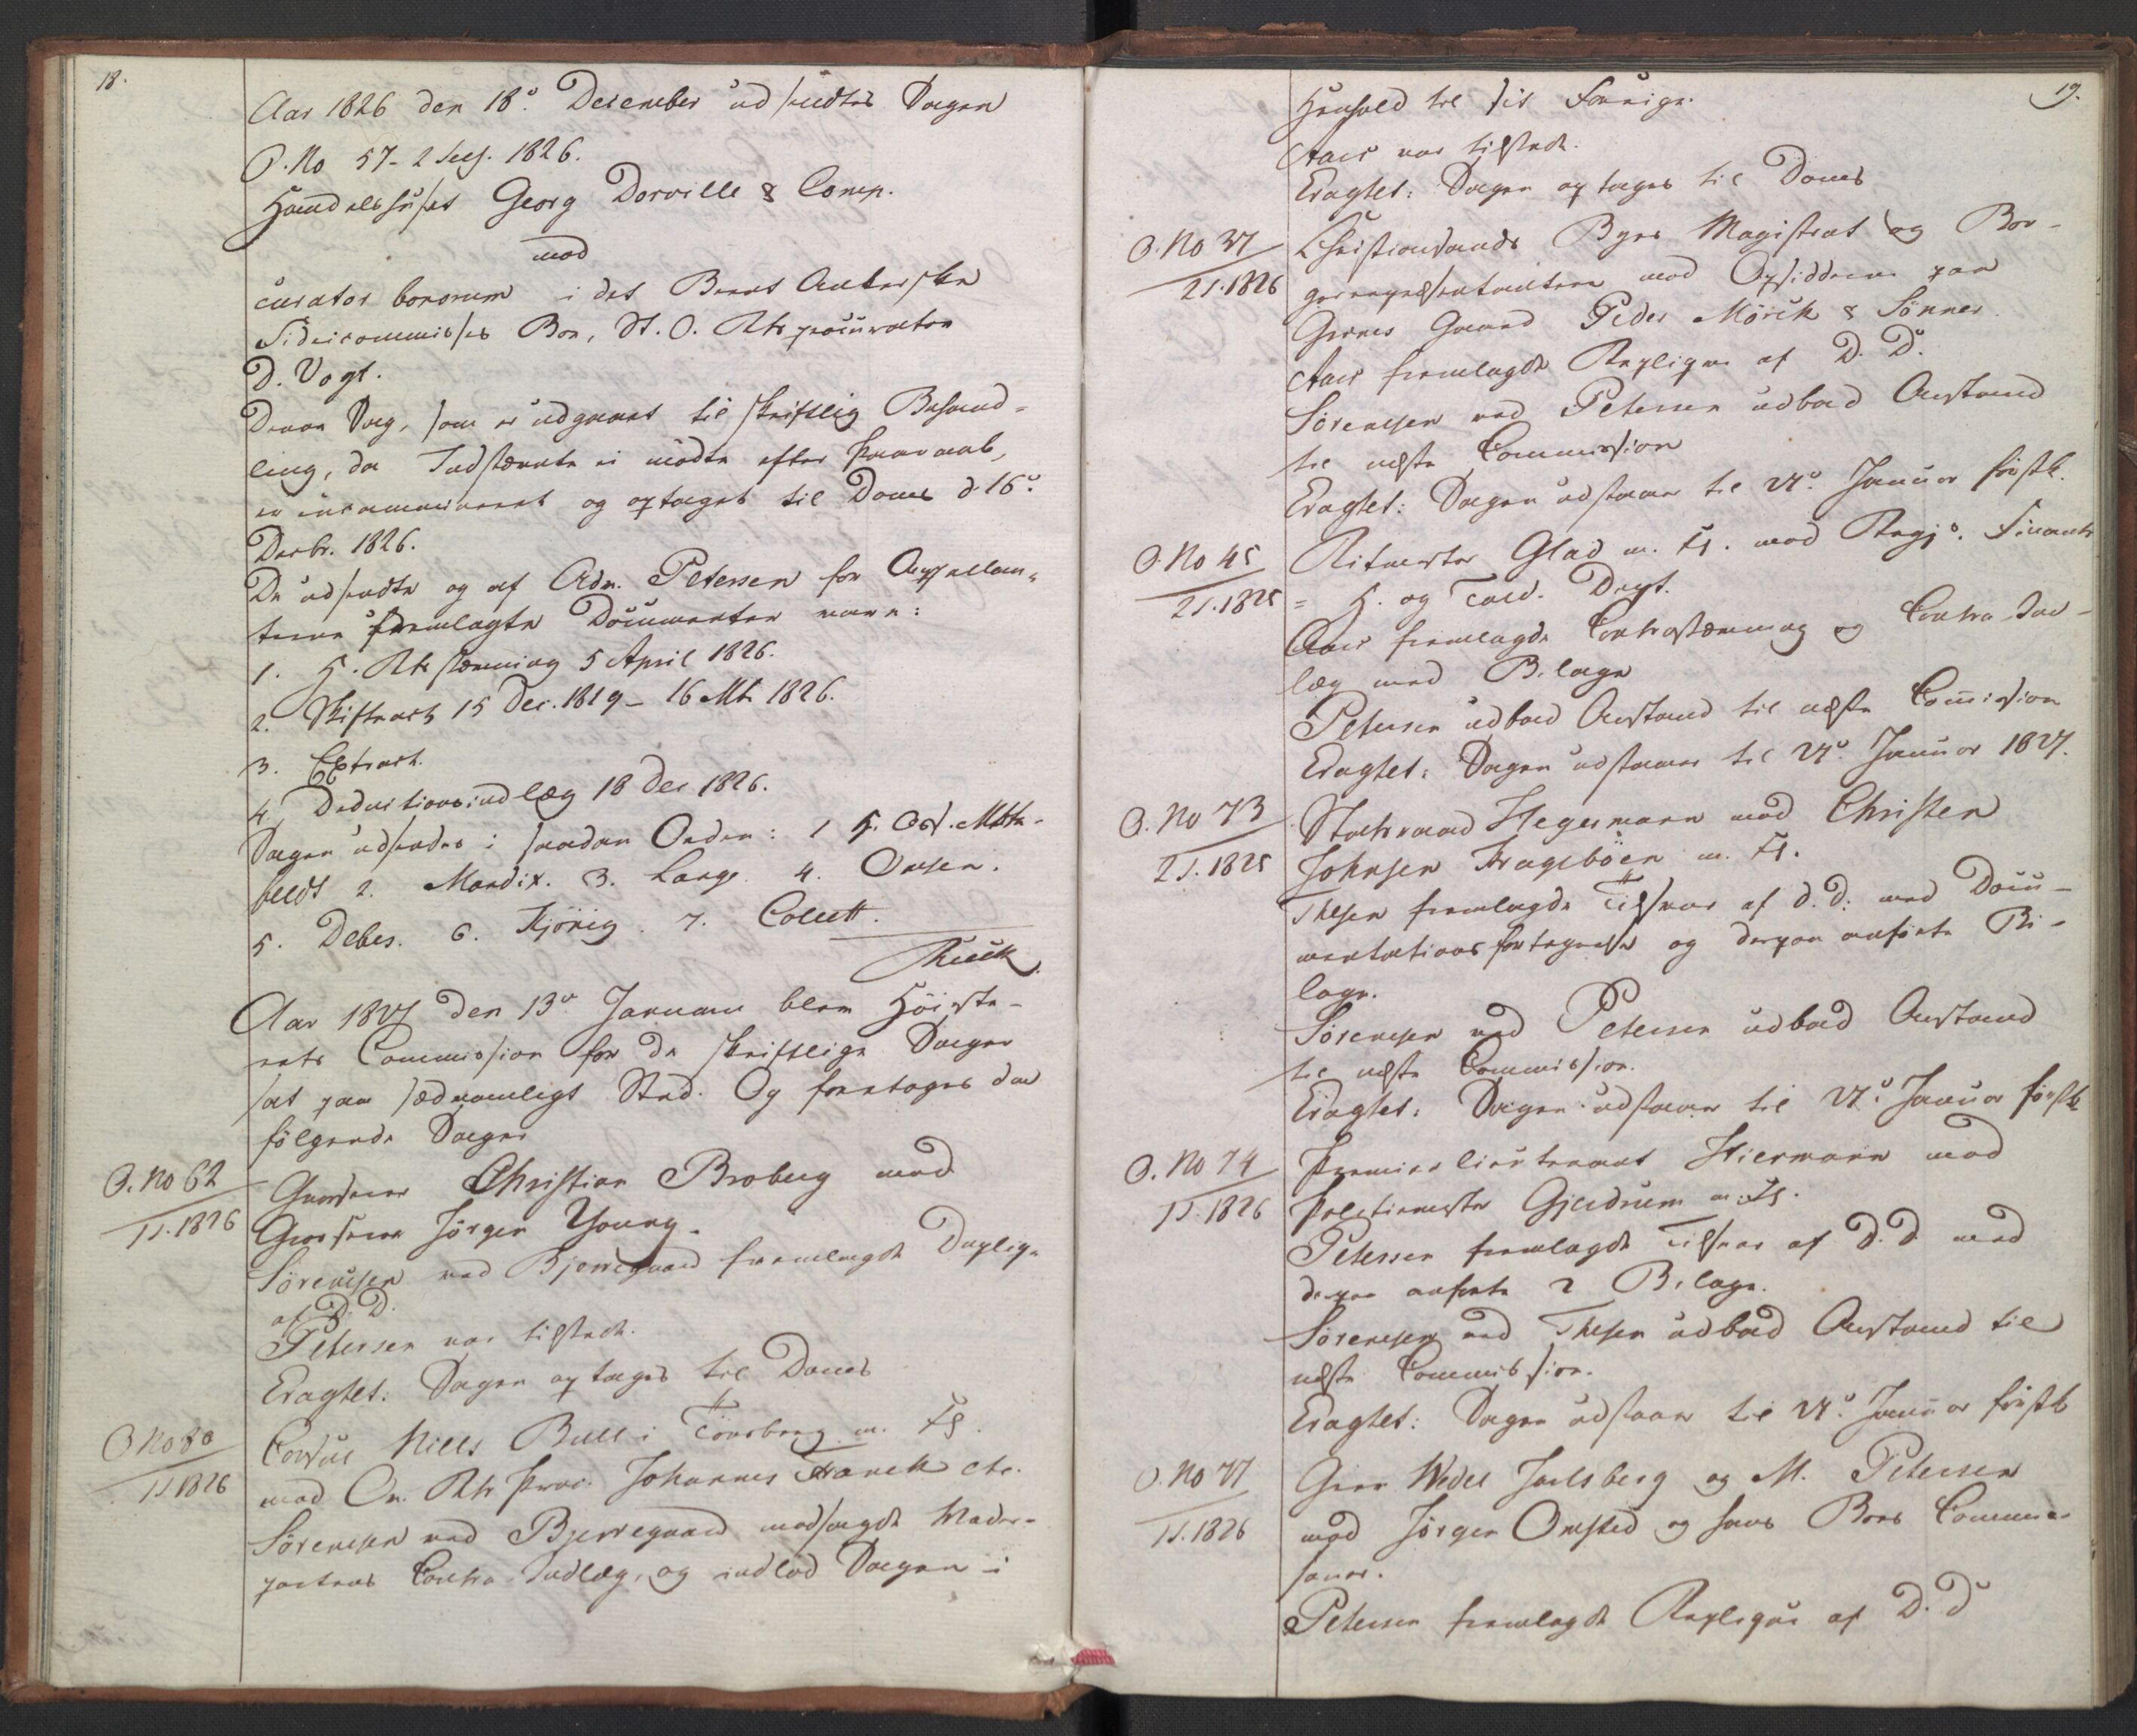 18.
Aar 1826 den 18de December udsendtes Sagen
P. No 57 - 2 Sess. 1826.
Handelshuset Georg Dorville & Comp.
mod
curator bonorum i det Bernt Ankerske
Fideicommisses Boe, St. O. Rts procurator
D. Vogt.
Denne Sag, som er udgaaet til skriftlig Behand-
ling, da Indstævnte ei mødte efter Paaraab,
er incamineret og optaget til Doms d. 16de
Decbr. 1826.
De udsendte og af Adv. Petersen for Appellan-
terne fremlagte Documenter vare:
1. H. Rts stævning 5 April 1826.
2. Skifteact 15 Dec. 1819 - 16 Mts 1826.
3. Extract.
4. Deductionsindlæg 18 Dec 1826.
Sagen udsendes i saadan Orden: 1
feldt 2. Mandix. 3. Lange. 4. Omsen.
5. Debes. 6. Kjønig. 7. Collett.
Aar 1827 den 13de Januar blev Høieste-
rets Commission for de skriftlige Sager
sat paa sædvanligt Sted. Og foretoges da
følgende Sager
P. No 62
1 S. 1826
Grosserer Christian Broberg mod
Grosserer Jørgen Young.
Sørensen ved Bjerregaard fremlagde Duplik
af D. D.
Petersen var tilstede.
Eragtet: Sagen optages til Doms
P. No 80
1 S. 1826
Consul Niels Bull i Tønsberg m. Fl.
mod Ov. Rts Proc. Johannes Franck etc.
Sørensen ved Bjerregaard modsagde Mader-
partens Contra Indlæg, og indlod Sagen i
19.
Henhold til sit Forrige.
Aars var tilstede.
Eragtet: Sagen optages til Doms
P. No 37
2 S. 1826
Christiansands Byes Magistrat og Bor-
gerrepræsentantere mod Opsidderne paa
Grims Gaard Peder Mørch & Sønner.
Aars fremlagde Repliqve af D. D.
Sørensen ved Petersen udbad Anstand
til næste Commission
Eragtet: Sagen udstaaer til 27de Januar førstk.
P. No 45
2 S. 1825
Ritmester Glad m. Fl. mod Regjs. Finants
= H. og Told. Dept.
Aars fremlagde Contrastævning og Contra-Ind-
læg med Bilage
Petersen udbad Anstand til næste Com̅ission
Eragtet: Sagen udstaaer til 27de Januar 1827.
P. No 73
2 S. 1825
Statsraad Hegermann mod Christen
Johnsen Kragebøen m. Fl.
Thesen fremlagde Tilsvar af d. D. med Docu-
mentationsfortegnelse og derpaa anførte Bi-
lage.
Sørensen ved Petersen udbad Anstand
til næste Commission.
Eragtet: Sagen udstaaer til 27de Januar førstk
P. No 74
1 S. 1826
Premierlieutenant Stiermann mod
Politiemester Gjerdrum m. Fl.
Petersen fremlagde Tilsvar af D. D. med
derpaa anførte 2 Bilage.
Sørensen ved Thesen udbad Anstand til
næste Commission.
Eragtet: Sagen udstaaer til 27de Januar førstk
P. No 77
1 S. 1826
Grev Wedel Jarlsberg og M. Petersen
mod Jørgen Omsted og hans Boes Commis-
sairer.
Petersen fremlagde Repliqve af D. D.